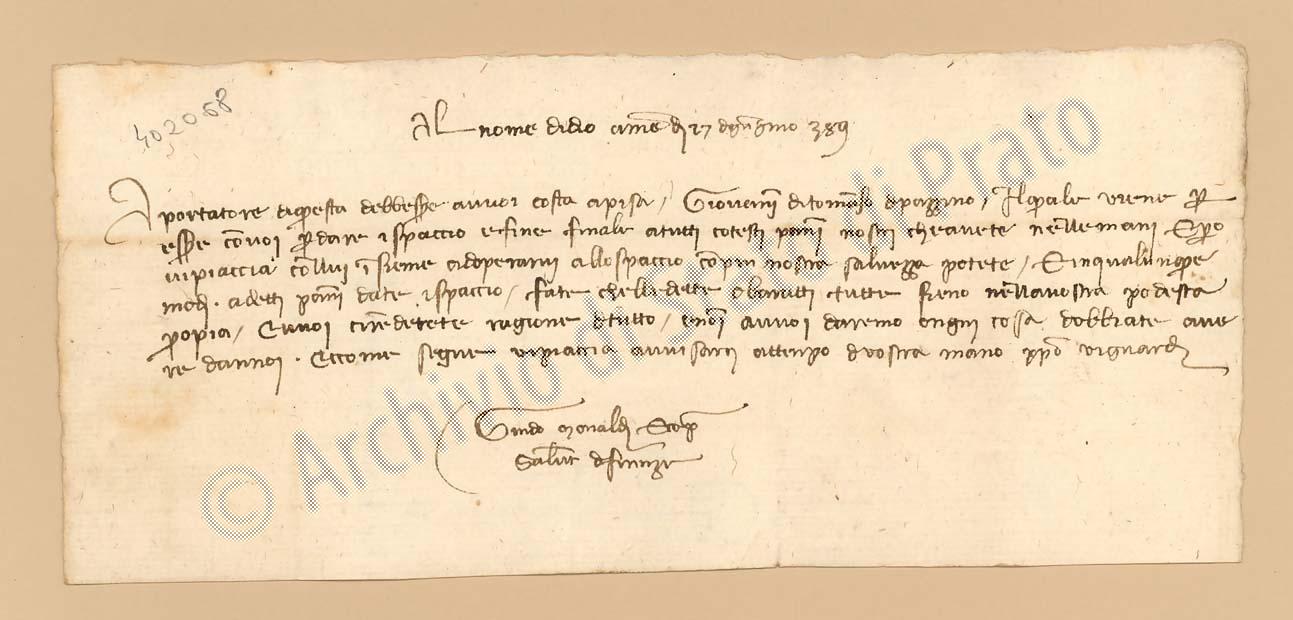 402068
Al nome di dio ame dì 27 di gugno 389
A portatore di questa debbessere a vvoi costa a pisa / Giovanni di tomaso di pazzino / Il quale viene per
essere co voi per dare ispaccio e fine finale a tutti cotesti panni nostri che avete nelle mani E però
vi piaccia co llui insieme adoperarvi allo spaccio con più nostra salvezza potete / E in qualunque
modo a detti panni date ispaccio / fate che lle dette o baratti tutte sieno nella vostra podesta
propia / E a vvoi cie rendete ragione di tutto / e noi a vvoi daremo ongni cosa dobbiate ave
re da nnoi . E come segue vi piaccia avvisarci a ttenpo di vostra mano xpo vi guardi
Guido Monaldi e conp
salute di firenze
© Archivio di Stato di Prato